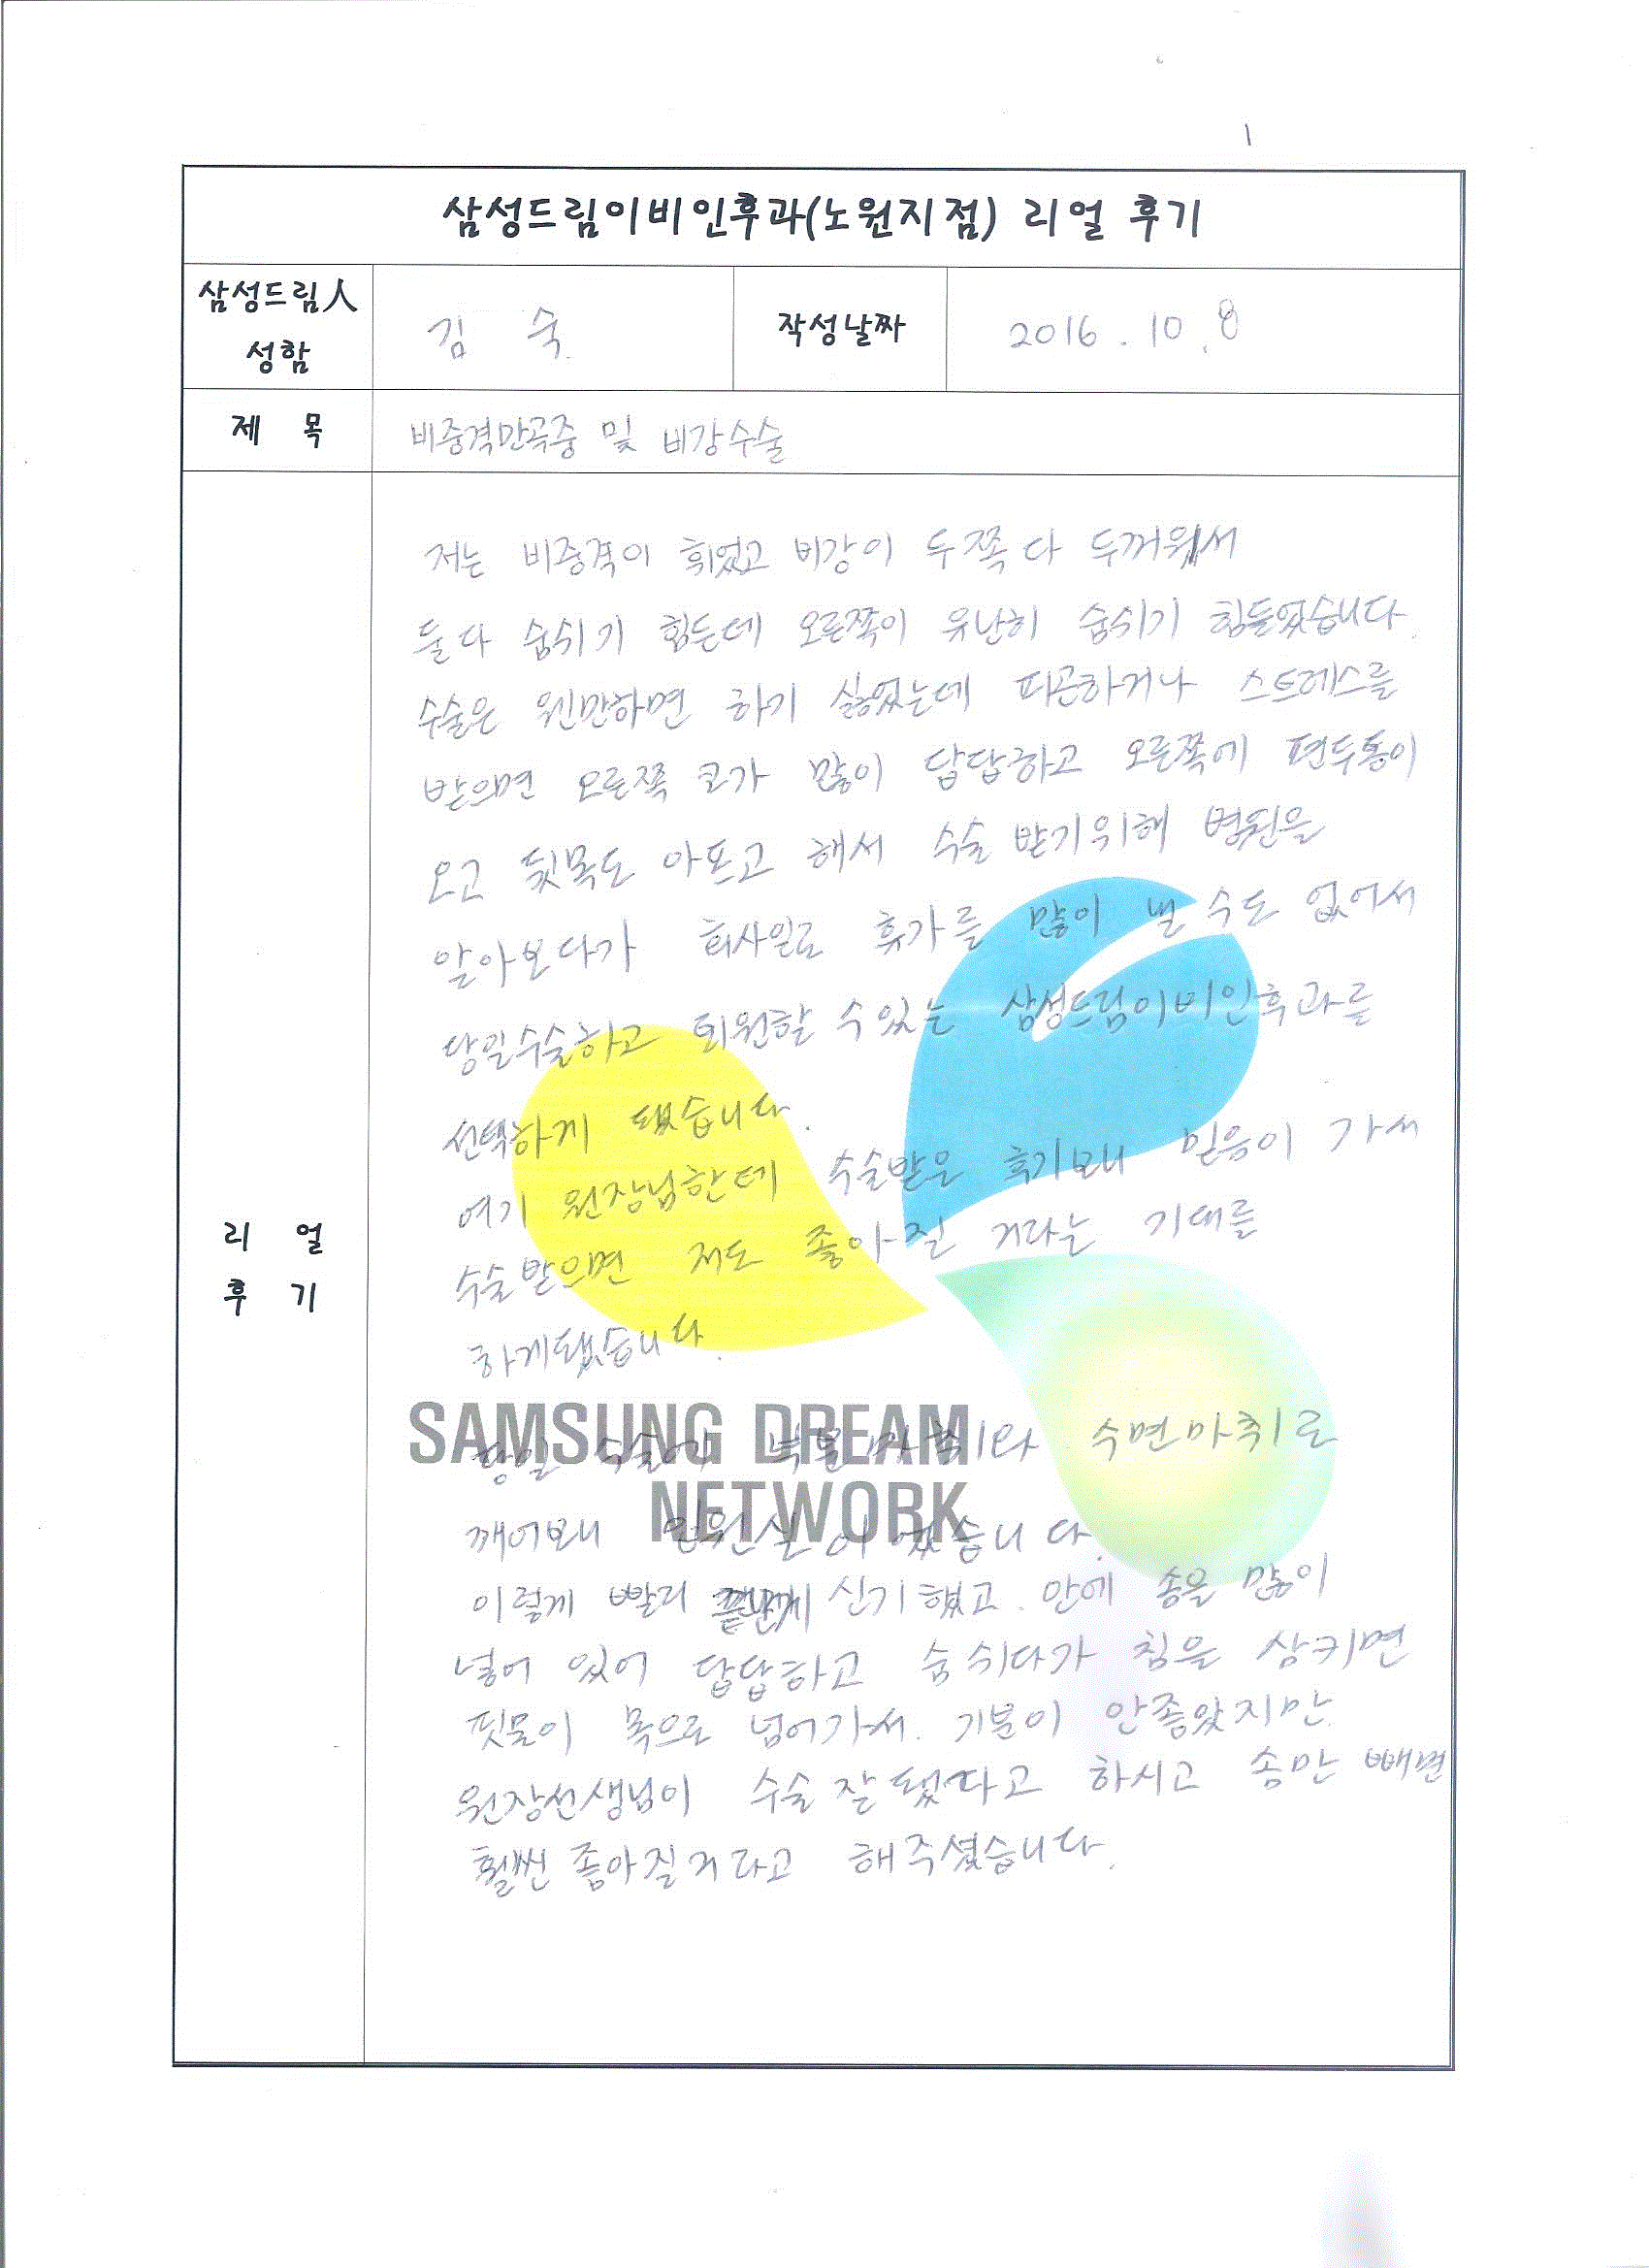 1
삼성드림이비인후과(노원지점) 리얼 후기
삼성드림人
성함
김 숙
작성날짜
2016. 10. 8
제 목
비중격만곡증 및 비강수술
리 얼
후 기
저는 비중격이 휘었고 비강이 두쪽 다 두꺼워서
둘다 숨쉬기 힘든데 오른쪽이 유난히 숨쉬기 힘들었습니다.
수술은 웬만하면 하기 싫었는데 피곤하거나 스트레스를
받으면 오른쪽 코가 많이 답답하고 오른쪽에 편두통이
오고 뒷목도 아프고 해서 수술 받기위해 병원을
알아보다가 회사일로 휴가를 많이 낼 수도 없어서
당일수술하고 퇴원할 수 있는 삼성드림이비인후과를
선택하게 됐습니다.
여기 원장님한테 수술받은 후기보니 믿음이 가서
수술받으면 저도 좋아질 거라는 기대를
하게됐습니다.
SAMSUNG DREAM
NETWORK
당일 마취와 수면마취로
깨어보니
이렇게 빨리 신기했고. 안에 솜을 많이
넣어 있어 답답하고 숨쉬다가 침을 삼키면
핏물이 목으로 넘어가서. 기분이 안좋았지만.
원장선생님이 수술 잘 됐다고 하시고 솜만 빼면
훨씬 좋아질거라고 해주셨습니다.